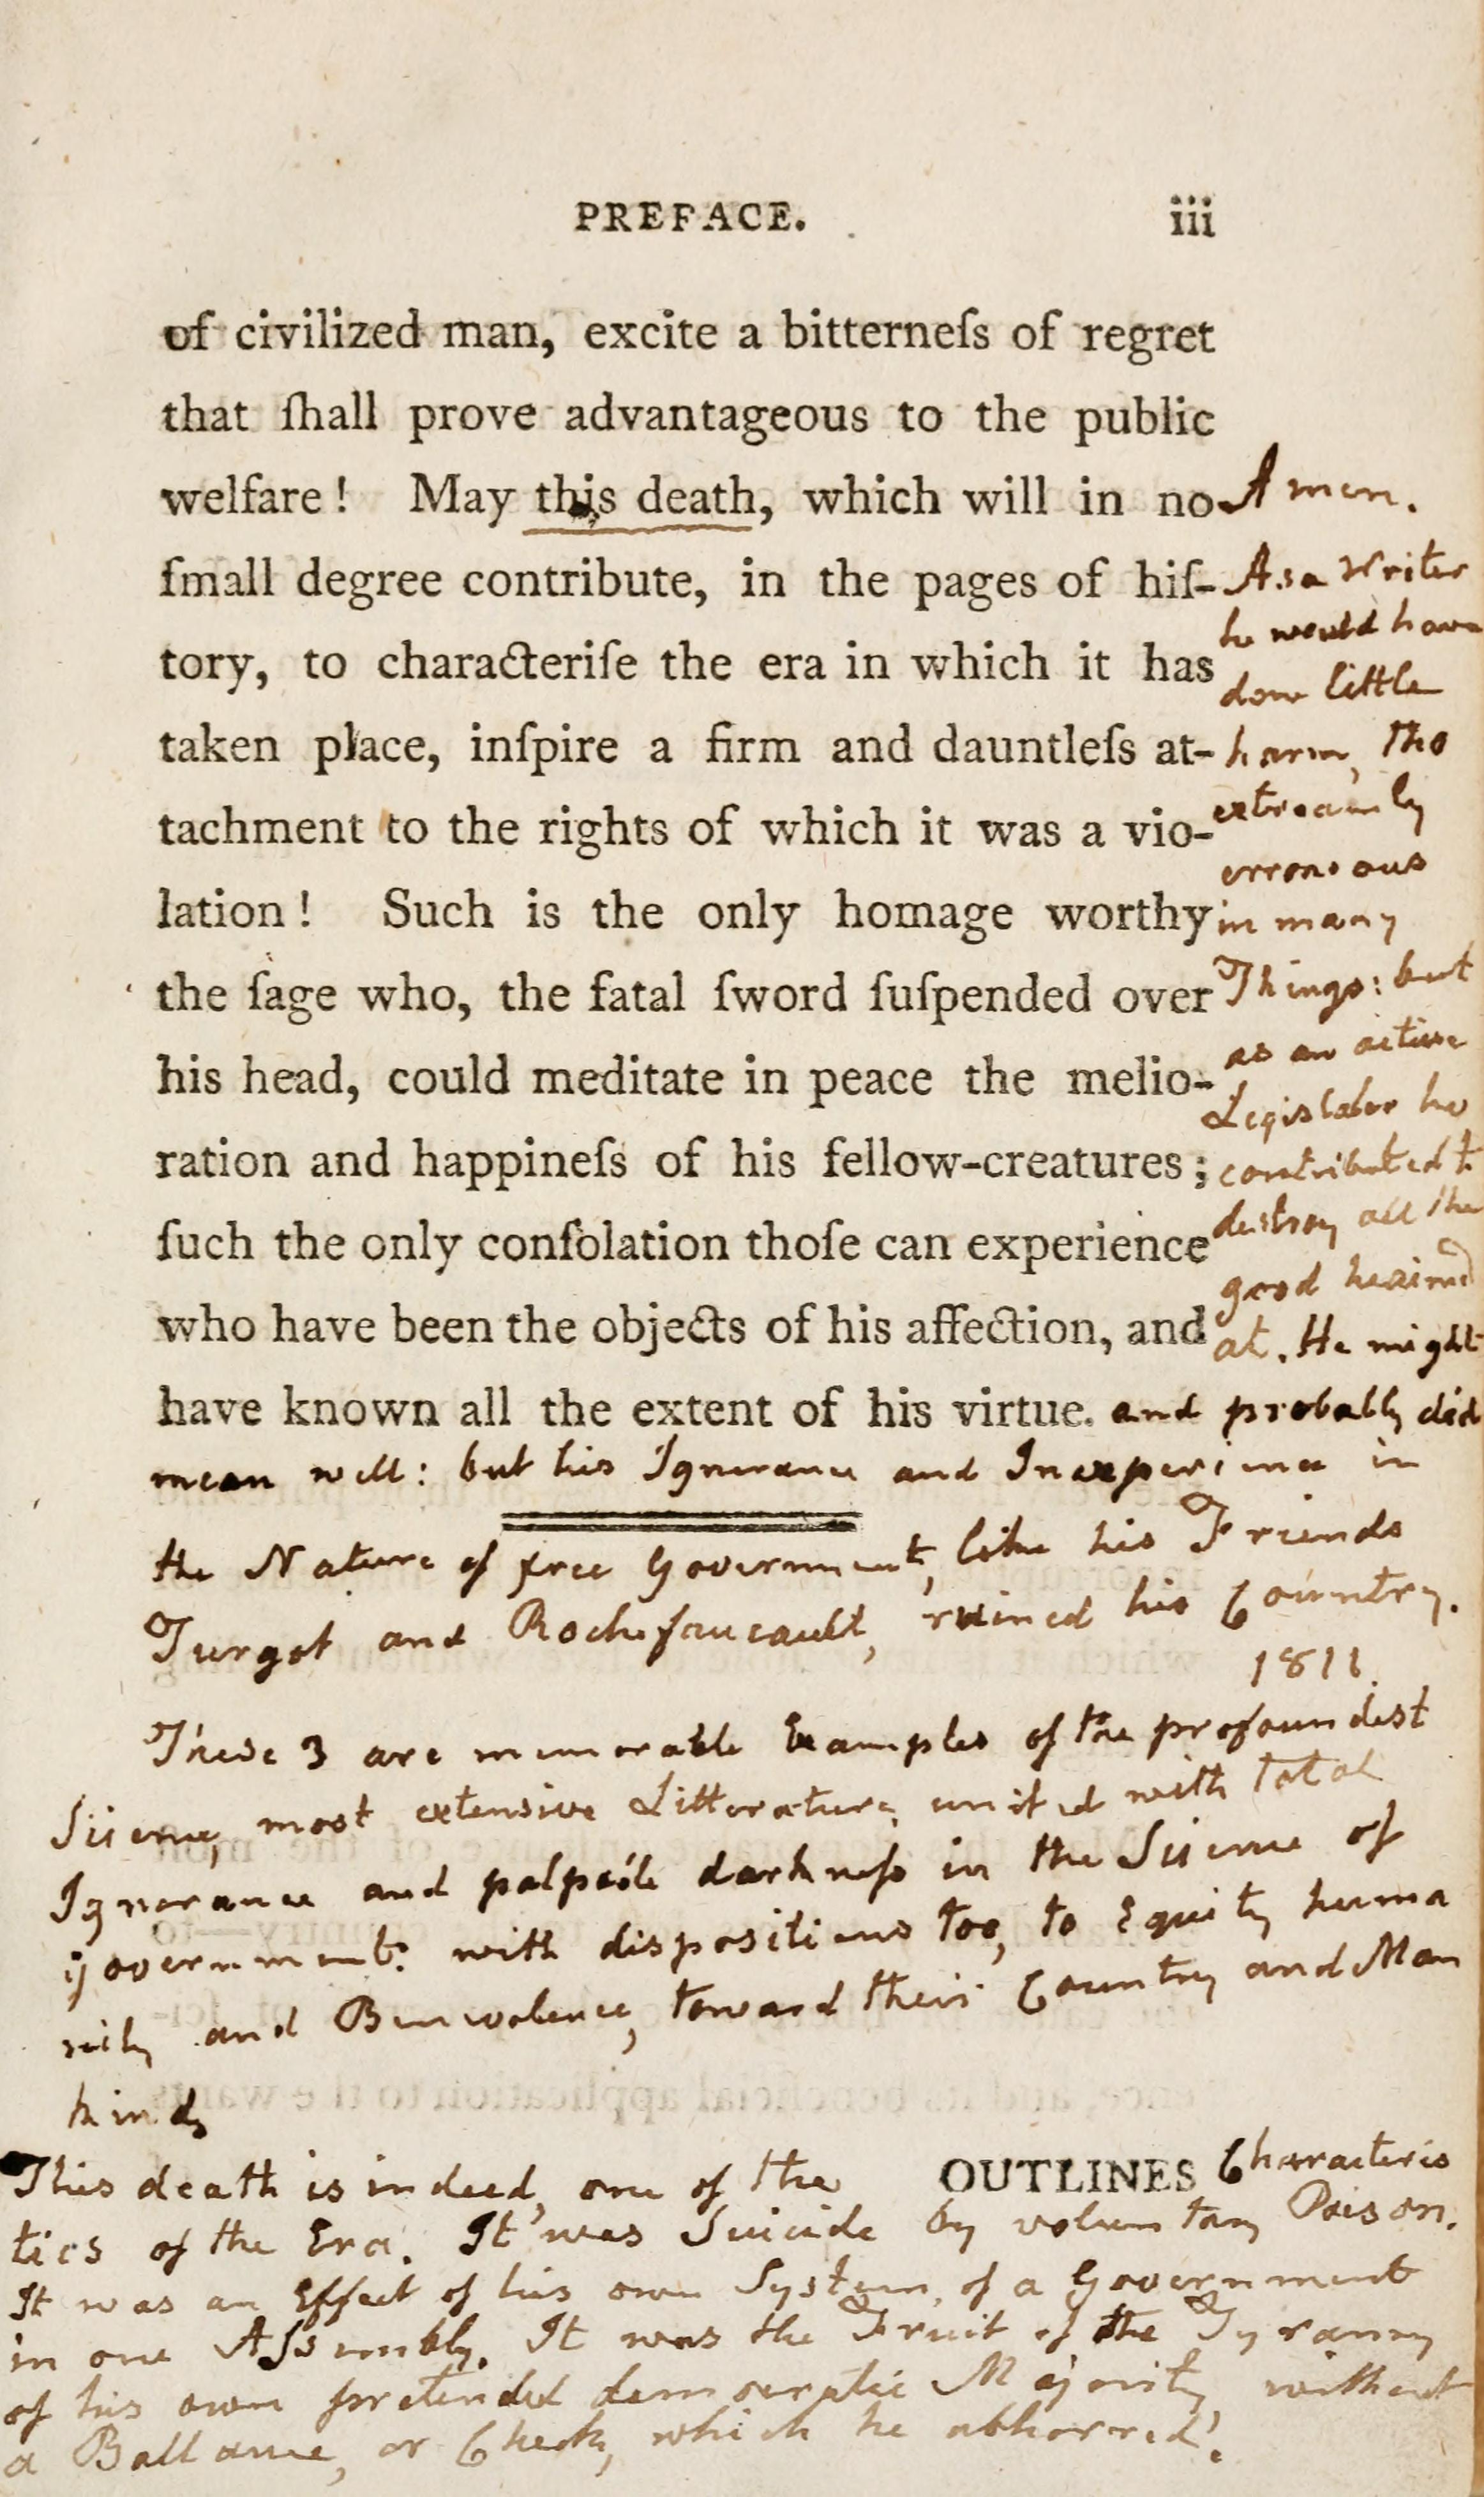 PREFACE. iii
of civilized man, excite a bitterneſs of regret
that ſhall prove advantageous to the public
welfare! May this death, which will in no
ſmall degree contribute, in the pages of hiſ-
tory, to characteriſe the era in which it has
taken place, inſpire a firm and dauntleſs at-
tachment to the rights of which it was a vio-
lation! Such is the only homage worthy
the ſage who, the fatal ſword ſuſpended over
his head, could meditate in peace the melio-
ration and happineſs of his fellow-creatures;
ſuch the only conſolation thoſe can experience
who have been the objects of his affection, and
have known all the extent of his virtue.
Amen.
As a Writer
he would have
done little
harm, tho
extreamly
erroneous
in many
Things: but
as an active
Legislator he
contributed to
destroy all the
good he aimed
at. He might
and probably did
mean well: but his Ignorance and Inexperience in
the Nature of free Government, like his Friends
Turgot and Rochefaucault, ruined his Country.
1811.
These 3 are memorable Examples of the profoundest
Science, most extensive Litterature, united with total
Ignorance and palpable darkness in the Science of
government: with dispositions too, to Equity huma
nity and Benevolence, toward their Country and Man
kind
This death is indeed, one of the Characteris
OUTLINES
tics of the Era. It was Suicide by voluntary Poison.
It was an Effect of his own System, of a Government
in one Aſsembly. It was the Fruit of the Tyranny
of his own pretended democratic Majority without
a Ballance, or Check, which he abhorred!